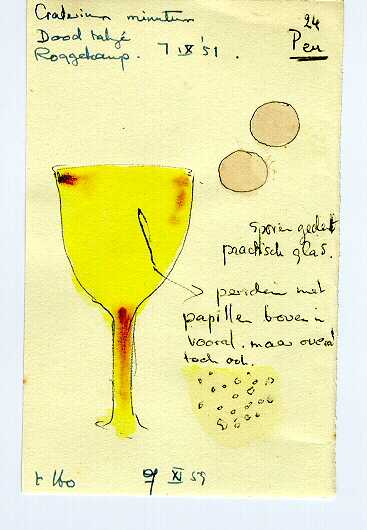 Craterium minutum
Dood takje
Roggekamp. 7 IX '51.
24
Per
sporen gedekt
practisch glas.
peridein met
papillen boven in
vooral. maar overal
toch ook.
t 160
9 XI 59